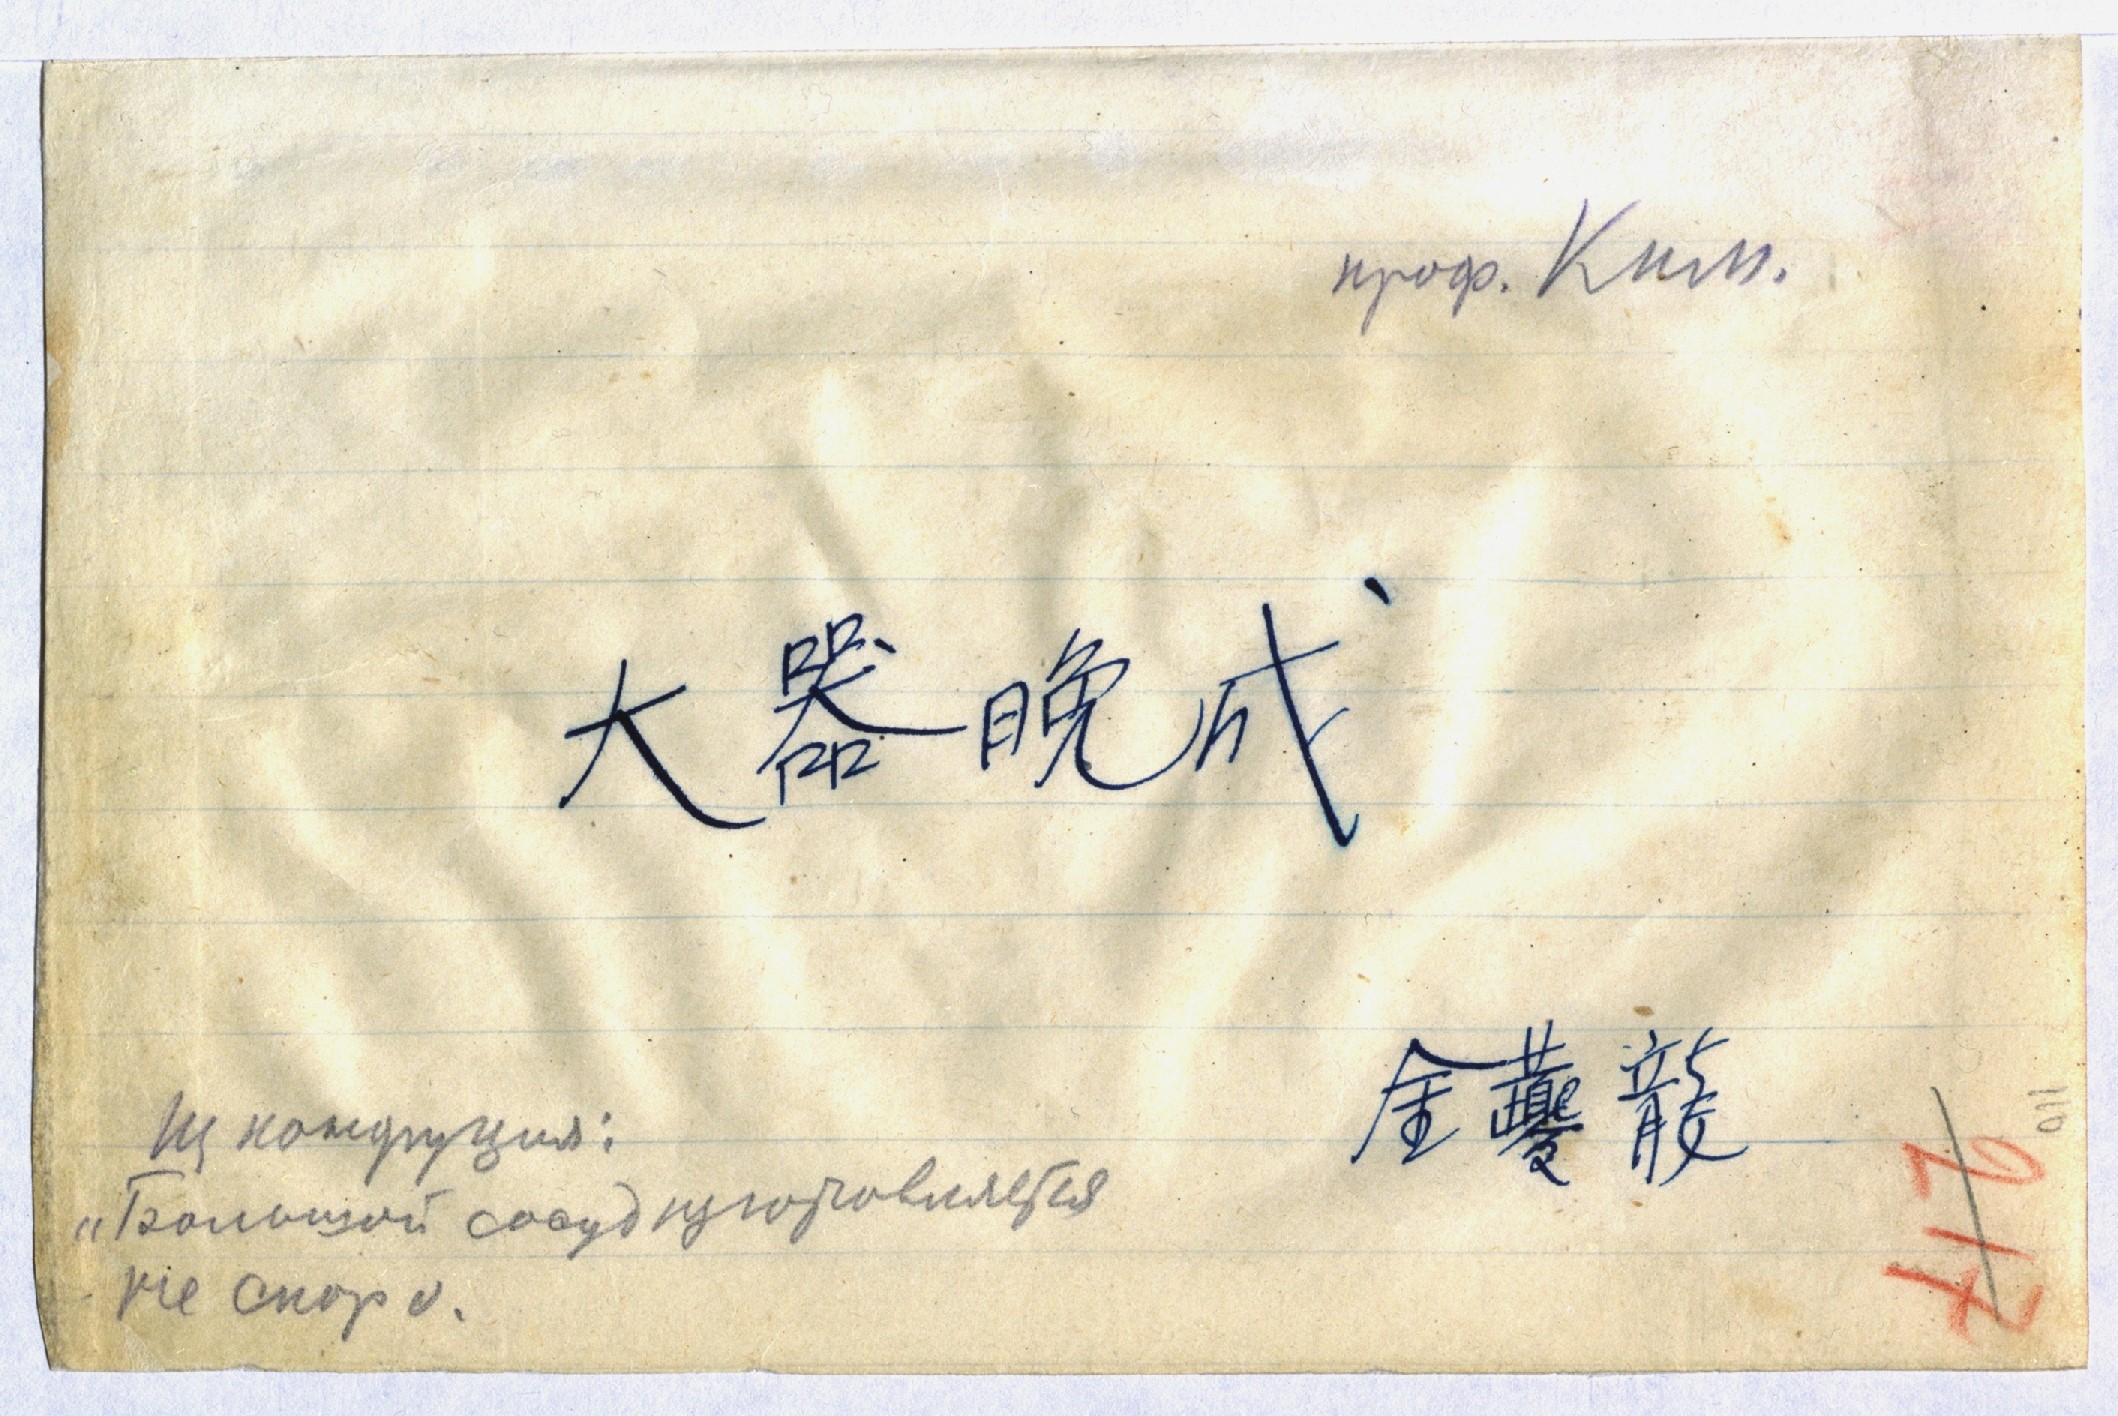 проф. Ким.
大器晚成
金夔龍
Из конфуция:
„Большой сосуд изготовляется
не скоро.
110